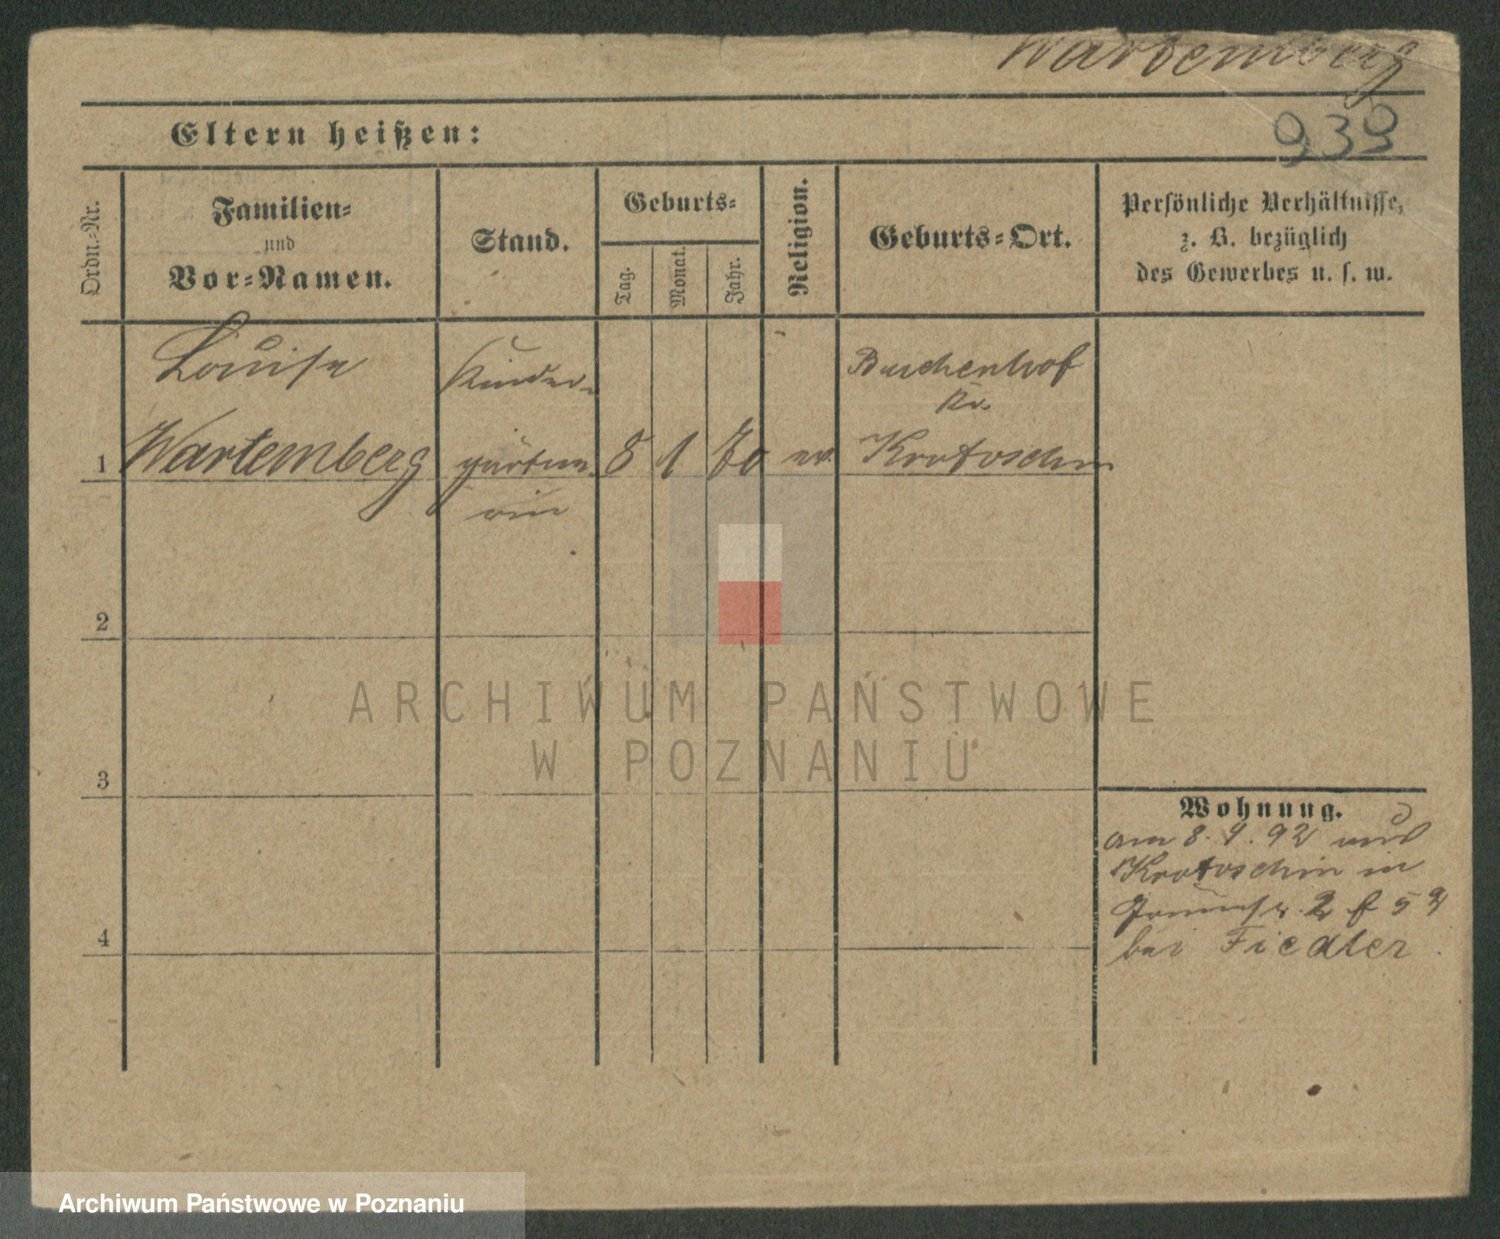 Wartemberg
939
Eltern heißen:
Ordn.-Nr.
Familien-
und
Vor-Namen.
Stand.
Geburts-
Tag.
Monat.
Jahr.
Religion.
Geburts-Ort.
Persönliche Verhältnisse,
z. B. bezüglich
des Gewerbes u. s. w.
Louise
Kinder-
Buchenhof
Kr.
1 Wartemberg gärtne- 8 1 70 ev. Krotoschin
rin
2
3
4
Wohnung.
am 8. 9. 92 aus
Krotoschin in
2
bei Fiedler
ARCHIWUM PAŃSTWOWE
W POZNANIU
Archiwum Państwowe w Poznaniu